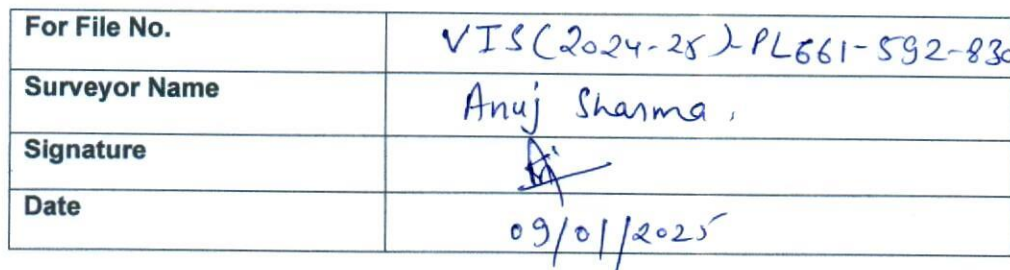 For File No. VIS(2024-25)-PL661-592-830
Surveyor Name Anuj Sharma.
Signature
Date 09/01/2025